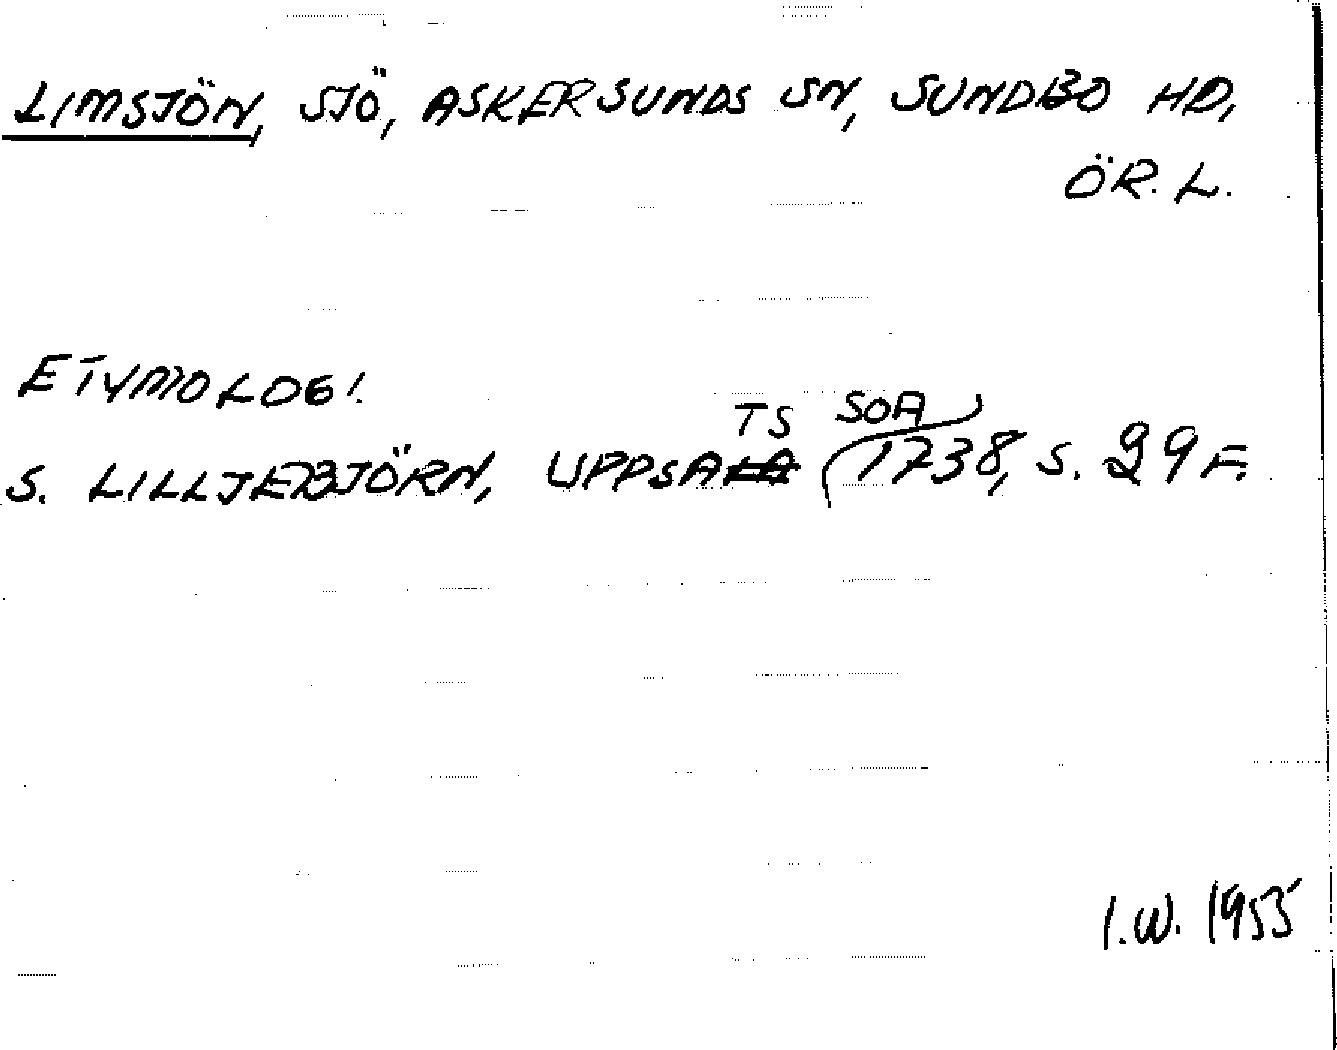 LIMSJÖN, SJÖ, ASKERSUNDS SN, SUNDBO HD,
ÖR. L.
ETYMOLOGI.
TS SOA
S. LILLJEBJÖRN, UPPSALA 1738, S. 29 F.
I.W. 1955